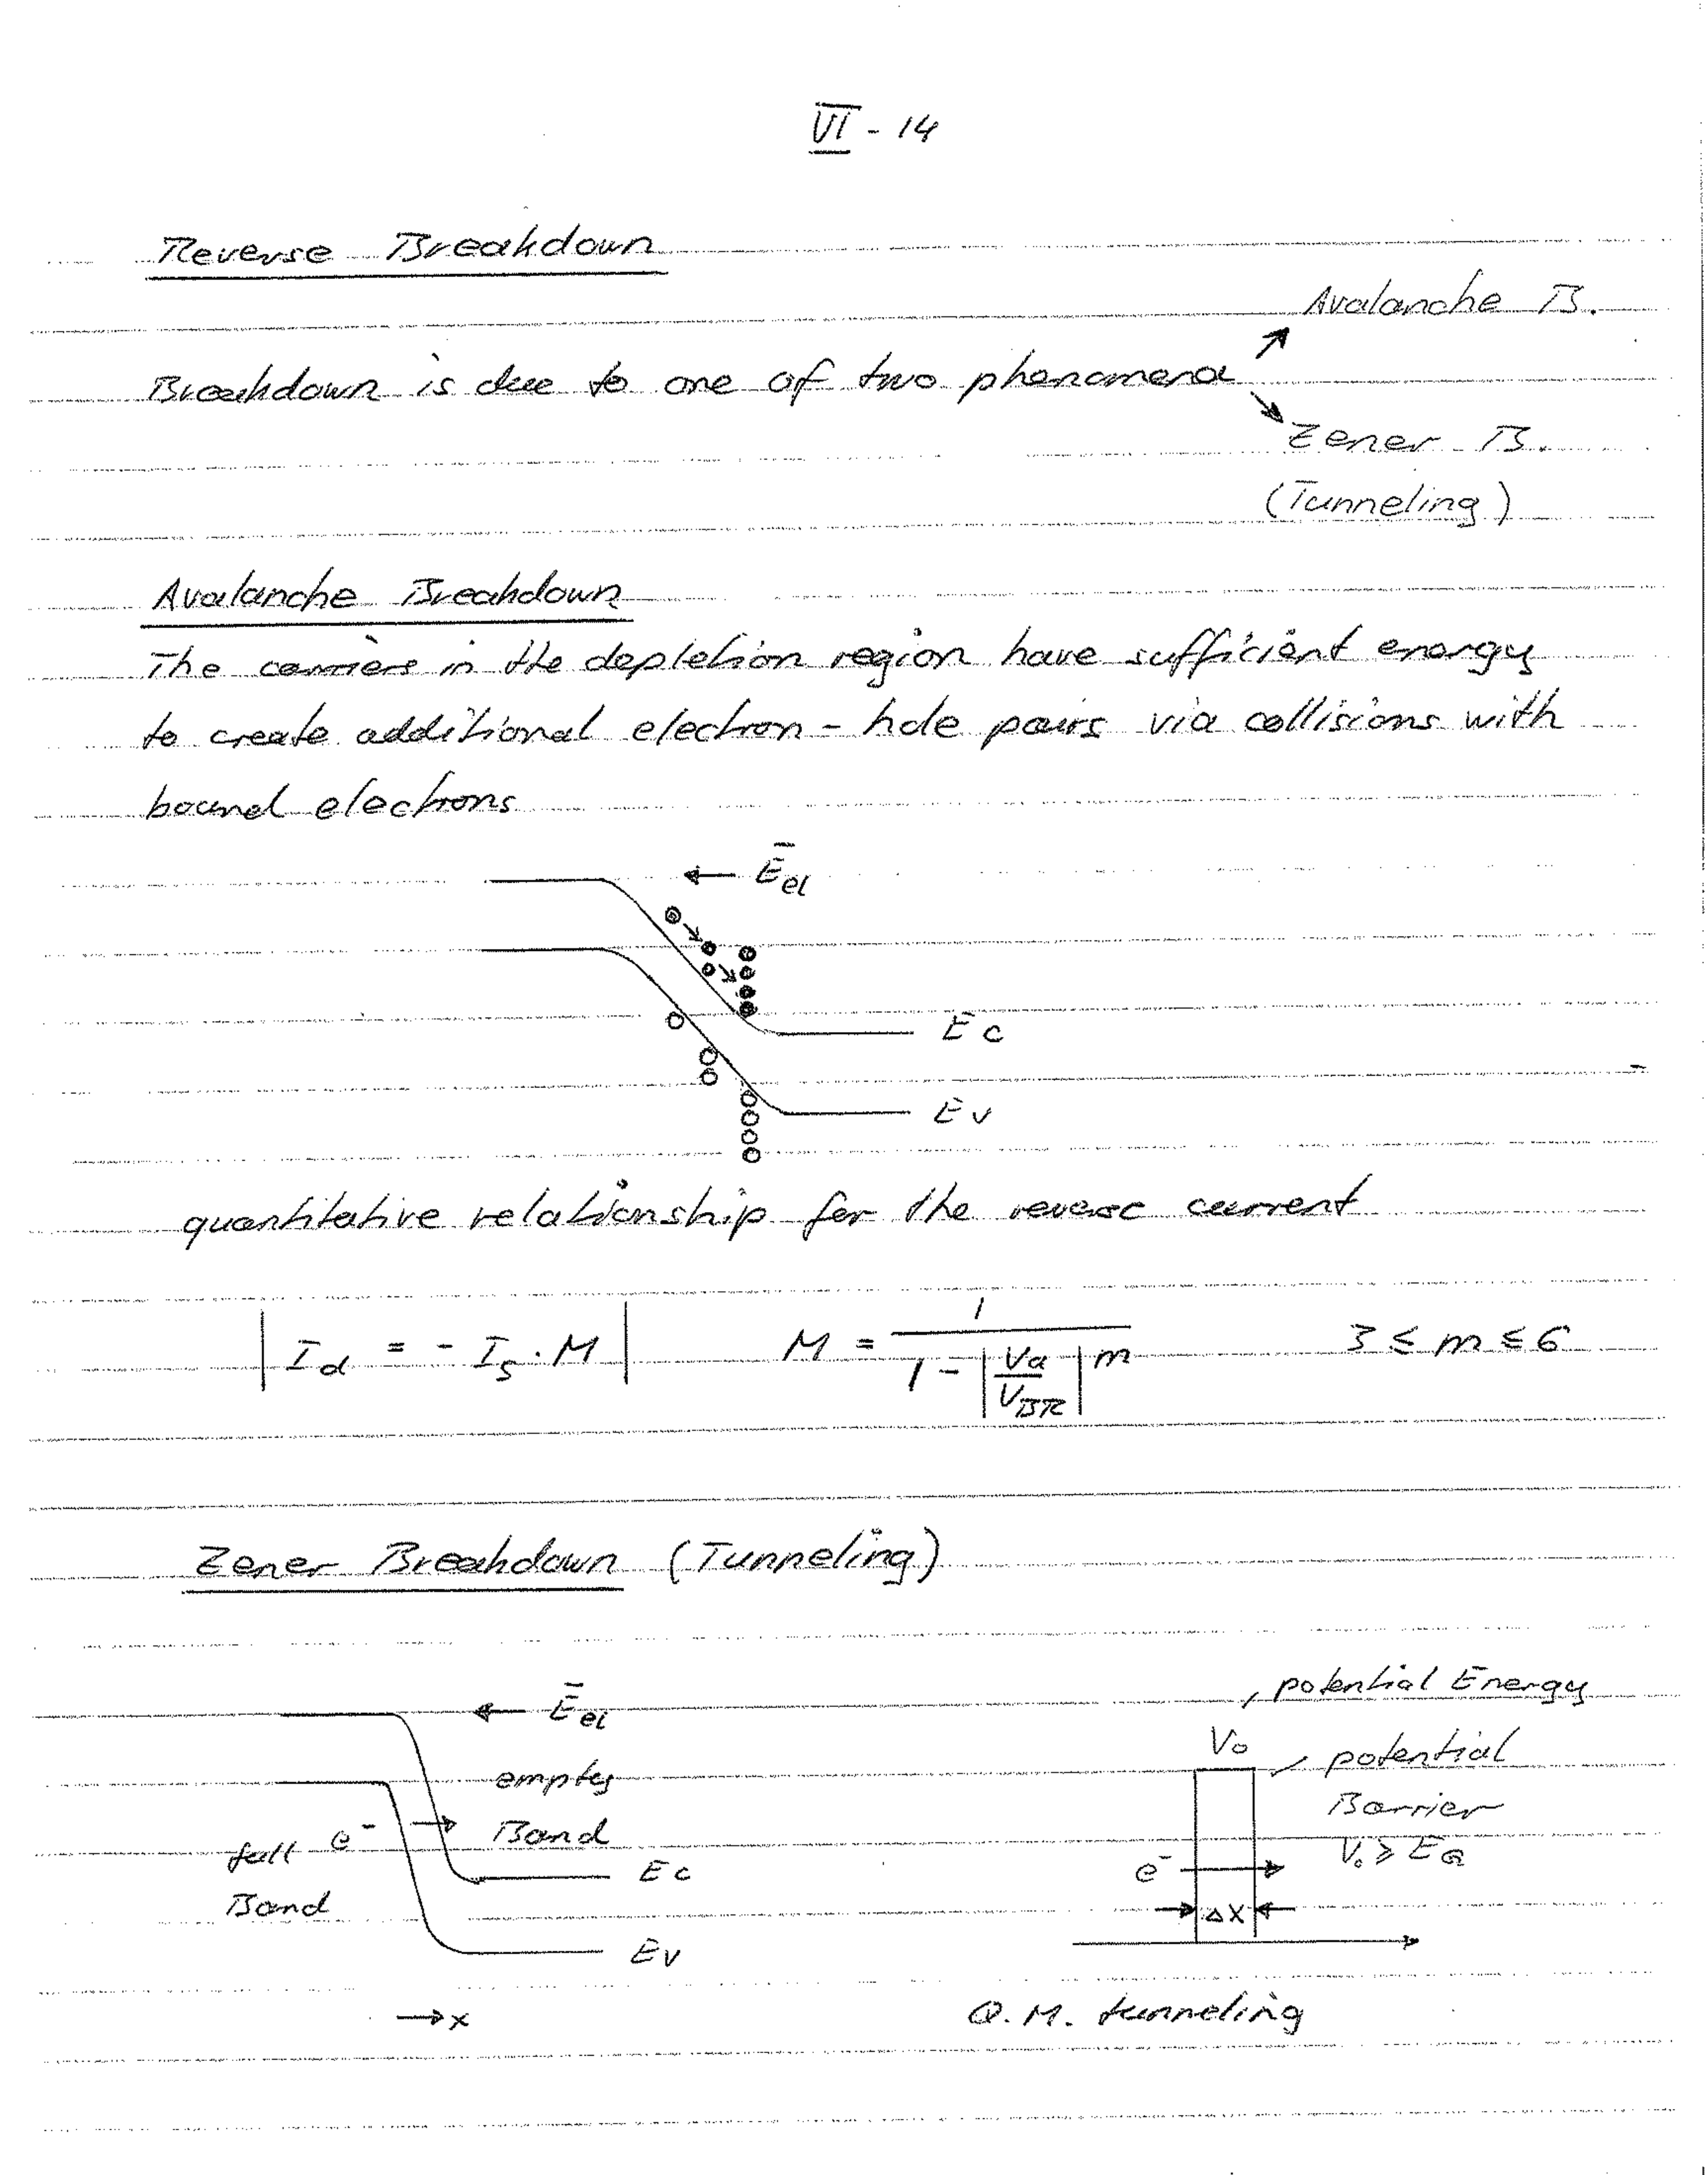 VI - 14
Reverse Breakdown
Avalanche B.
Breakdown is due to one of two phenomena
Zener B.
(Tunneling)
Avalanche Breakdown
The carriers in the depletion region have sufficient energy
to create additional electron - hole pairs via collisions with
bound electrons
← Eel
Ec
Ev
quantitative relationship for the reverse current
| Id = - Is . M | M = 1 / (1 - |Va/VBR| m) 3 ≤ m ≤ 6
Zener Breakdown (Tunneling)
← Eel
empty
Band
full e-
Band
Ec
Ev
→ x
potential Energy
Vo
potential
Barrier
Vo ≥ EG
e-
Δx
Q.M. tunneling